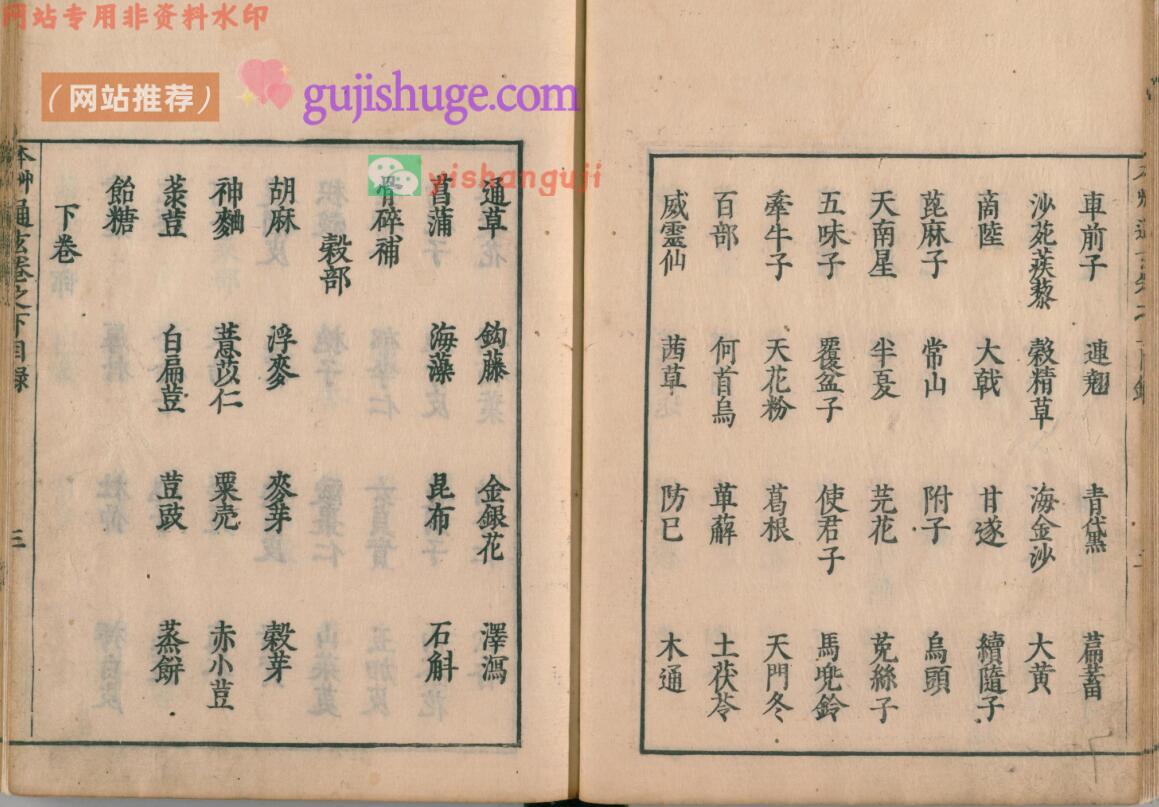 网站专用非资料水印
（网站推荐）
gujishuge.com
yishanguji
車前子 連翹 青黛 萹蓄
沙苑蒺藜 穀精草 海金沙 大黄
商陸 大戟 甘遂 續隨子
蓖麻子 常山 附子 烏頭
天南星 半夏 芫花 菟絲子
五味子 覆盆子 使君子 馬兜鈴
牽牛子 天花粉 葛根 天門冬
百部 何首烏 萆薢 土茯苓
威靈仙 茜草 防已 木通
通草 鈎藤 金銀花 澤瀉
菖蒲 海藻 昆布 石斛
骨碎補
穀部
胡麻 浮麥 麥芽 穀芽
神麯 薏苡仁 粟壳 赤小荳
菉荳 白扁荳 荳豉 蒸餅
飴糖
下卷
本艸通玄卷之下目錄 三